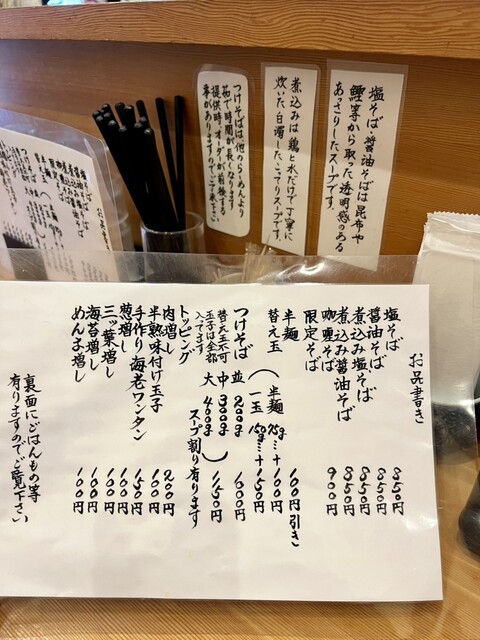 塩そば・醤油そばは昆布や
鰹等から取った透明感のある
あっさりしたスープです。
煮込みは鶏と水だけで丁寧に
炊いた白濁したこってりスープです。
つけそばは他のらーめんより
茹で時間が長くなります
提供時、オーダーが前後する
事がありますのでご了承下さい
お品書き
塩そば 850円
醤油そば 850円
煮込み塩そば 850円
煮込み醤油そば 850円
咖喱そば 900円
限定そば
半麺 100円引き
替え玉(半麺 75g…+100円
一玉 150g…+150円)
つけそば 並 200g 1000円
替え玉不可 中 300g
玉子は全部 大 400g 1150円
入ってます スープ割り有ります
トッピング
肉増し 200円
半熟味付け玉子 100円
手作り海老ワンタン 150円
葱増し 100円
三ッ葉増し 100円
海苔増し 100円
めんま増し 100円
裏面にごはんもの等
有りますのでご覧下さい
お品書き